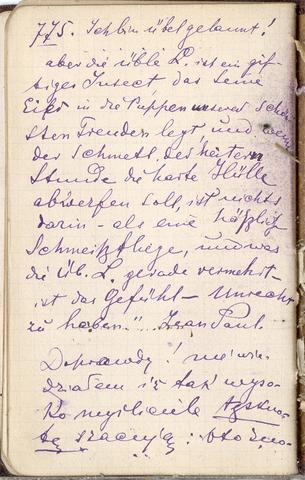 775. Ich bin übel gelaunt!
aber die üble L. ist ein gif-
tiges Insect das seine
Eier in die Puppen unsrer schön-
sten Freuden legt, und wenn
der Schmetl. der heitern
Stunde die harte Hülle
abwerfen soll, ist nichts
darin - als eine häßlich
Schmeißfliege, und was
die üb. L. gerade vermehrt -
ist das Gefühl - Unrecht
zu haben." Jean Paul.
Doprawdy! nie wie-
działem iż tak wyso-
ko myśliciele
szacują: oto